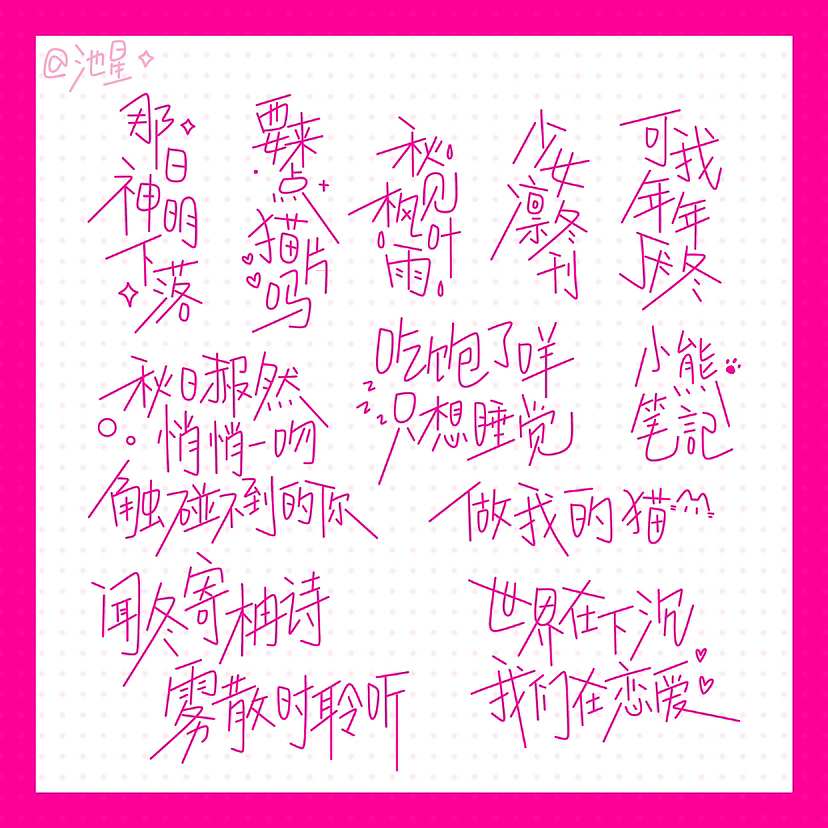 @池星
那日神明下落
要来点猫片吗
秘见枫叶雨
少女凛冬刊
可我年年厌冬
秋日赧然
悄悄一吻
吃饱了咩
只想睡觉
小熊
笔記
触碰不到的你
做我的猫
闻冬寄柟诗
雾散时聆听
世界在下沉
我们在恋爱